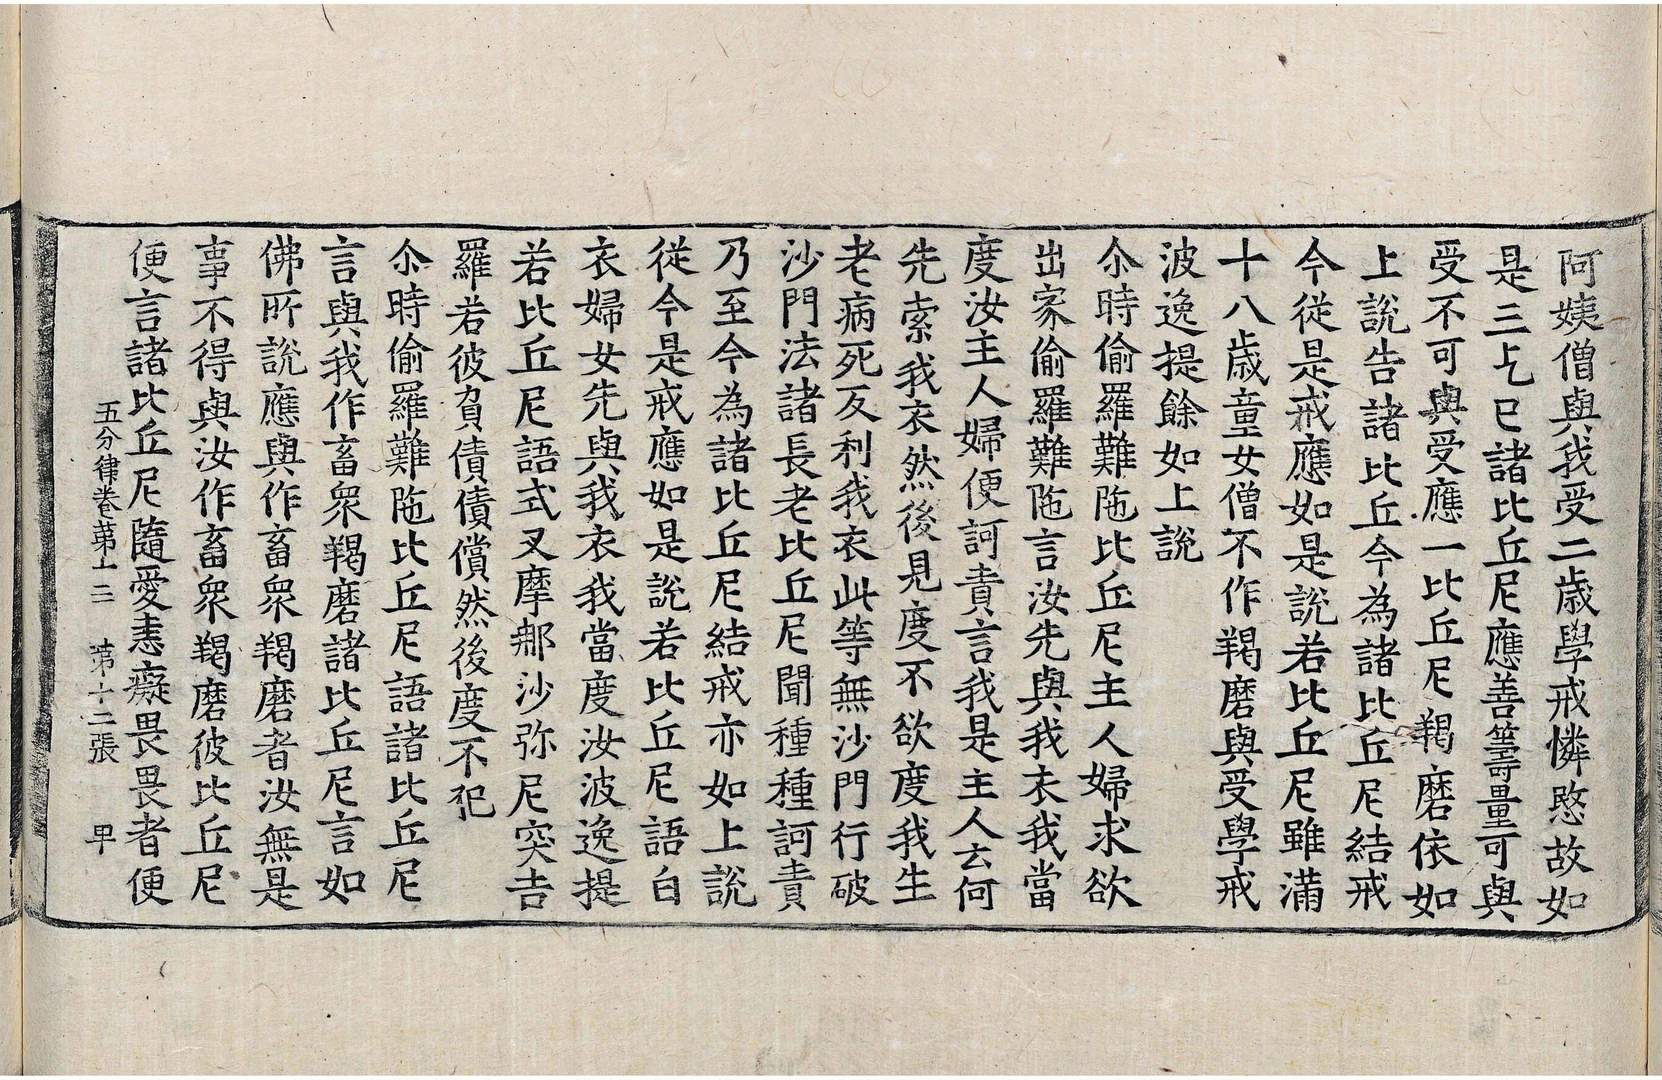 阿姨僧與我受二歲學戒憐愍故如
是三乞已諸比丘尼應善籌量可與
受不可與受應一比丘尼羯磨依如
上說告諸比丘今為諸比丘尼結戒
今從是戒應如是說若比丘尼雖滿
十八歲童女僧不作羯磨與受學戒
波逸提餘如上說
尒時偷羅難陁比丘尼主人婦求欲
出家偷羅難陁言汝先與我衣我當
度汝主人婦便訶責言我是主人云何
先索我衣然後見度不欲度我生
老病死反利我衣此等無沙門行破
沙門法諸長老比丘尼聞種種訶責
乃至今為諸比丘尼結戒亦如上說
從今是戒應如是說若比丘尼語白
衣婦女先與我衣我當度汝波逸提
若比丘尼語式叉摩那沙弥尼突吉
羅若彼負債債償然後度不犯
尒時偷羅難陁比丘尼語諸比丘尼
言與我作畜衆羯磨諸比丘尼言如
佛所說應與作畜衆羯磨者汝無是
事不得與汝作畜衆羯磨彼比丘尼
便言諸比丘尼隨愛恚癡畏畏者便
五分律卷苐十三　苐十二張　甲